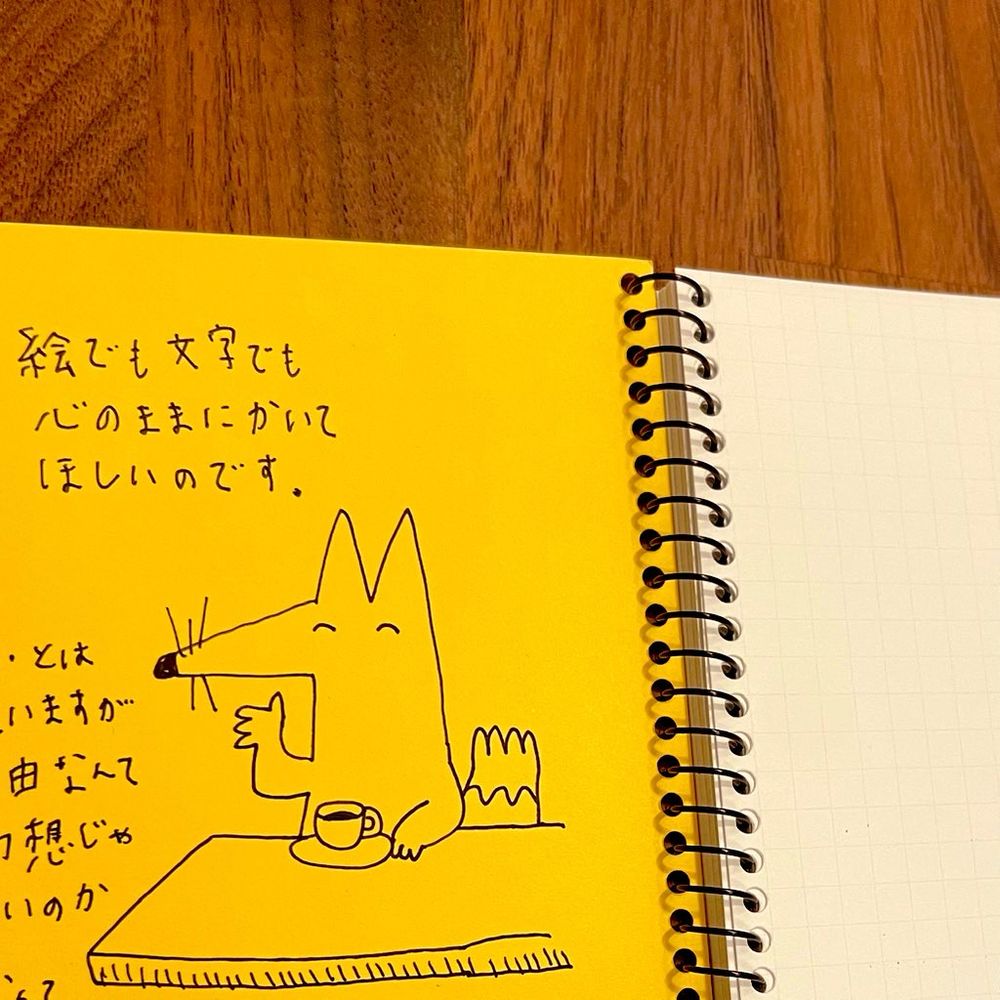 絵でも文字でも
心のままにかいて
ほしいのです.
・とは
いますが
由なんて
想じゃ
いのか